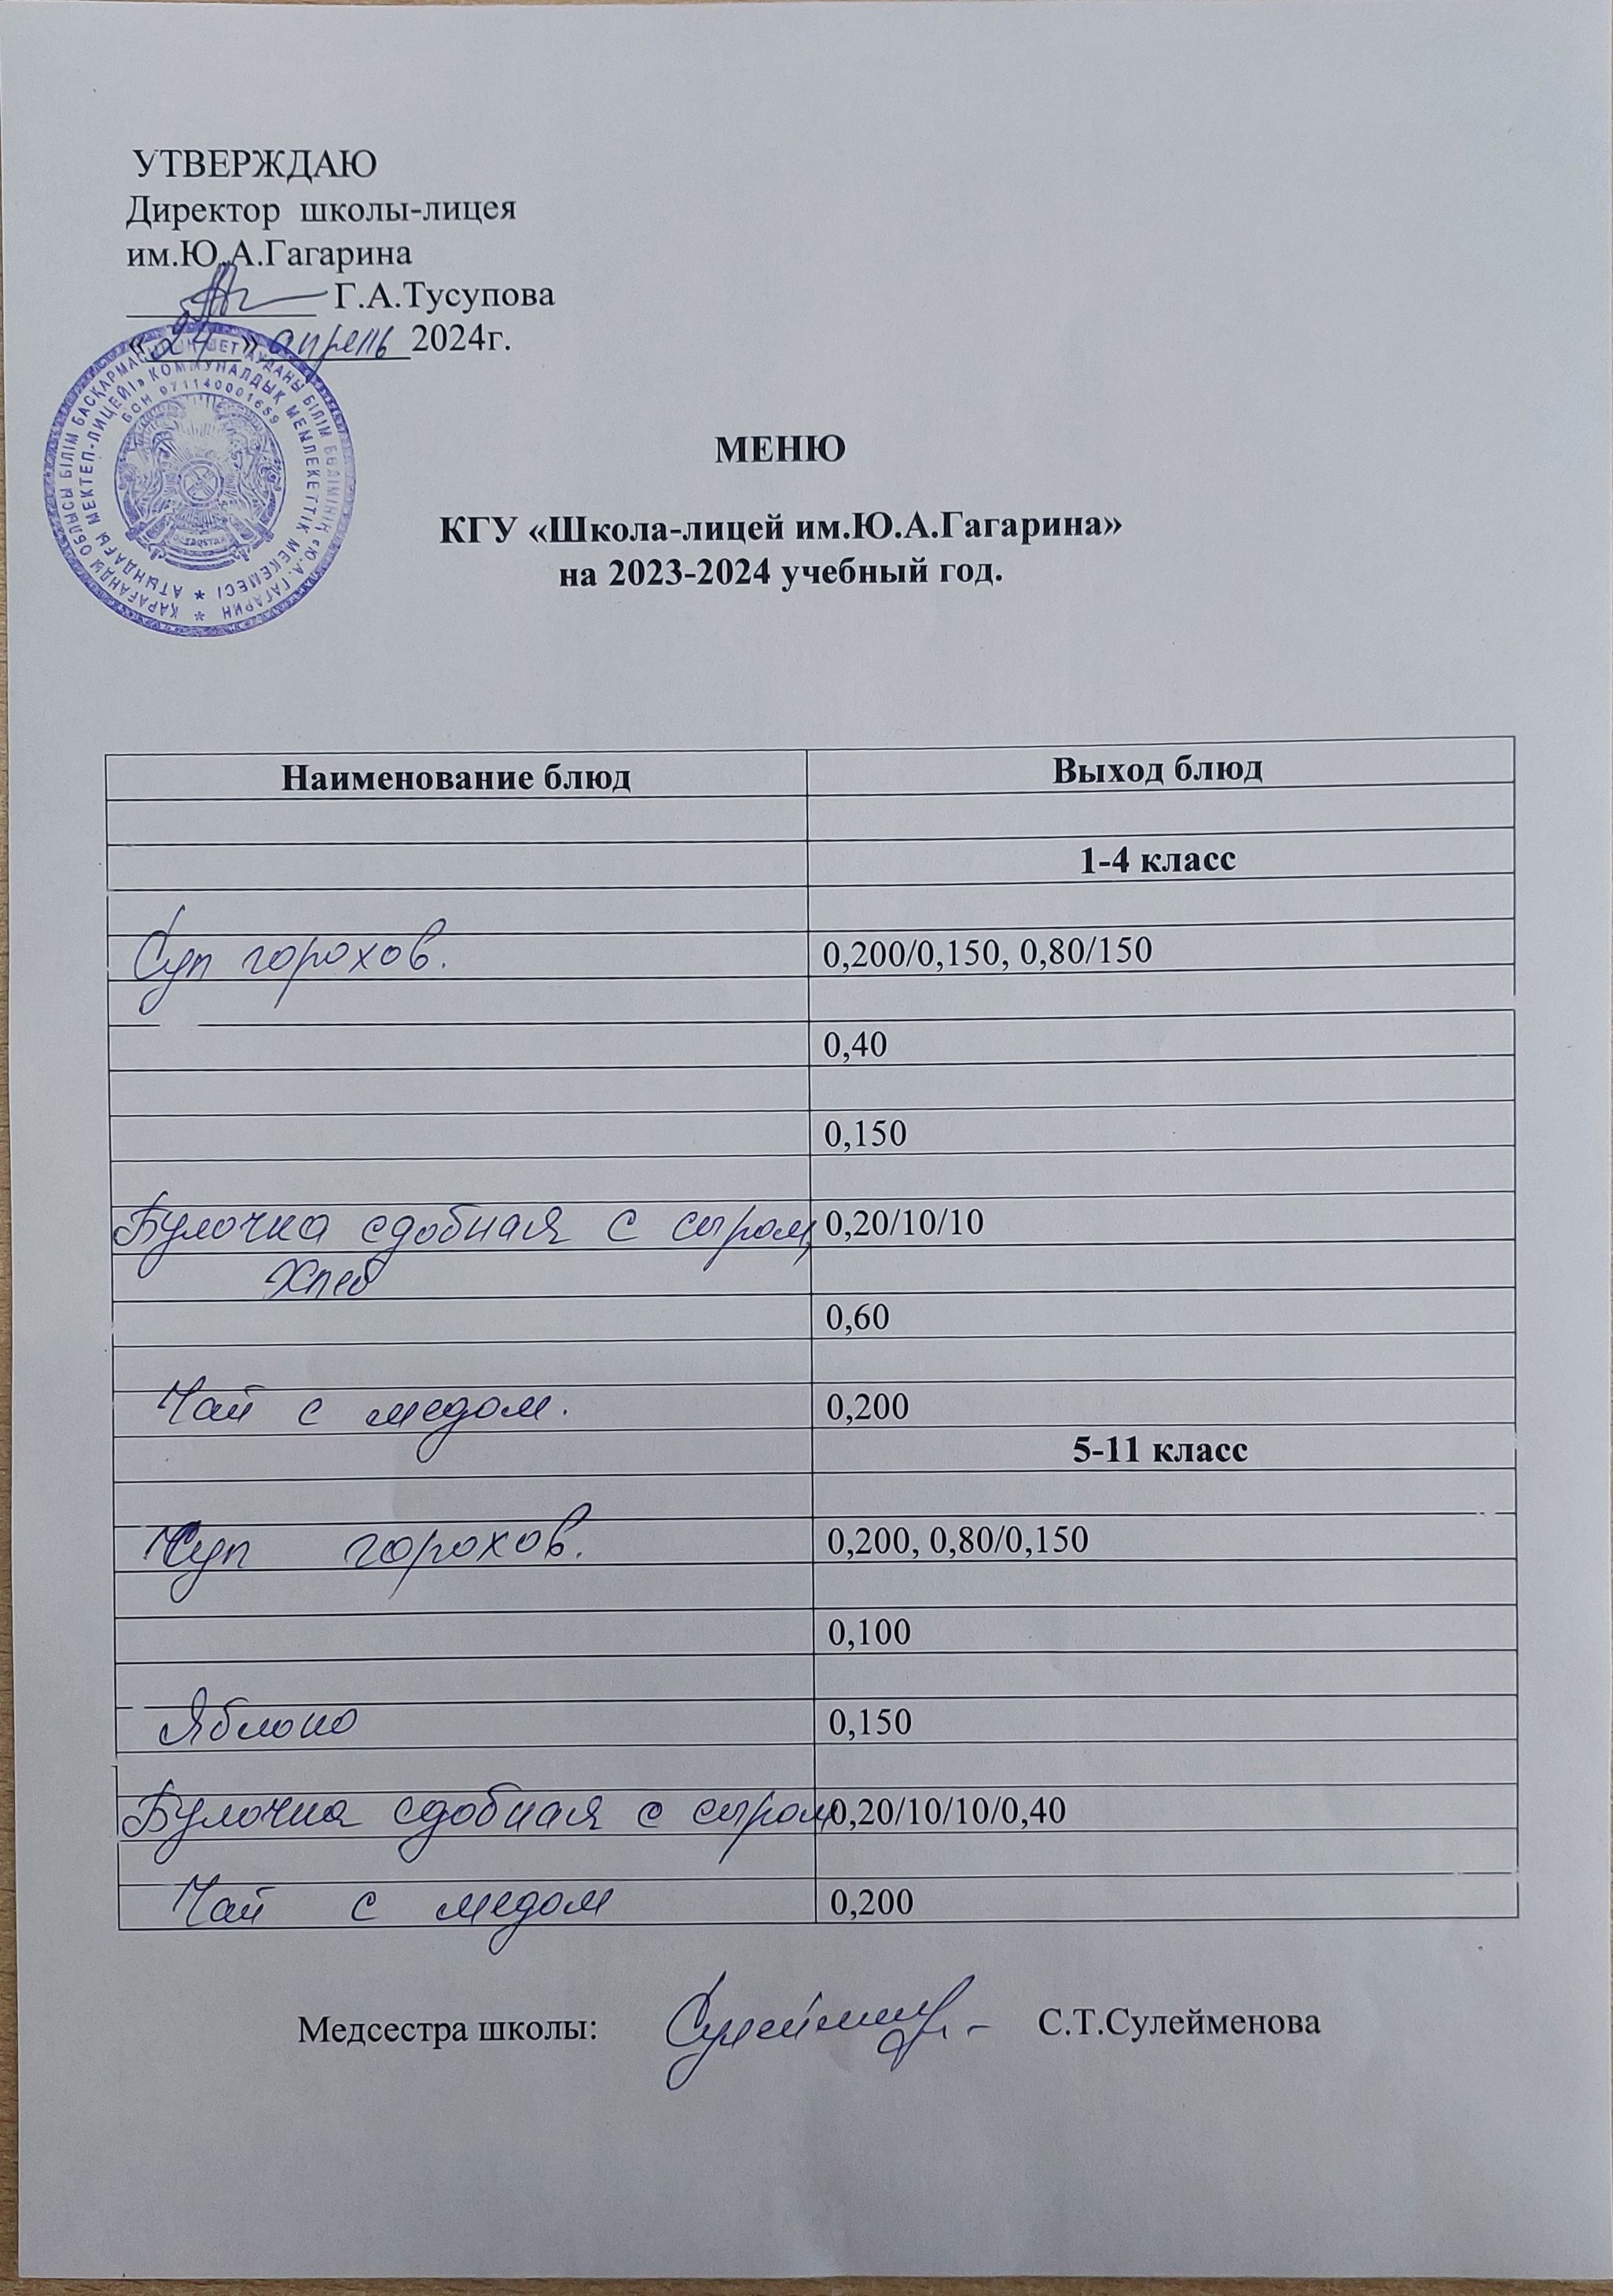 УТВЕРЖДАЮ
Директор школы-лицея
им.Ю.А.Гагарина
Г.А.Тусупова
«24» апрель 2024г.
ҚАРАҒАНДЫ ОБЛЫСЫ БІЛІМ БАСҚАРМАСЫНЫҢ ШЕТ АУДАНЫ БІЛІМ БӨЛІМІНІҢ «Ю.А. ГАГАРИН
АТЫНДАҒЫ МЕКТЕП-ЛИЦЕЙІ» КОММУНАЛДЫҚ МЕМЛЕКЕТТІК МЕКЕМЕСІ
БСН 971140001659
МЕНЮ
КГУ «Школа-лицей им.Ю.А.Гагарина»
на 2023-2024 учебный год.
Наименование блюд Выход блюд
1-4 класс
Суп горохов. 0,200/0,150, 0,80/150
0,40
0,150
Булочка сдобная с сыром, 0,20/10/10
Хлеб
0,60
Чай с медом. 0,200
5-11 класс
Суп горохов. 0,200, 0,80/0,150
0,100
Яблоко 0,150
Булочка сдобная с сыром 0,20/10/10/0,40
Чай с медом 0,200
Медсестра школы: С.Т.Сулейменова